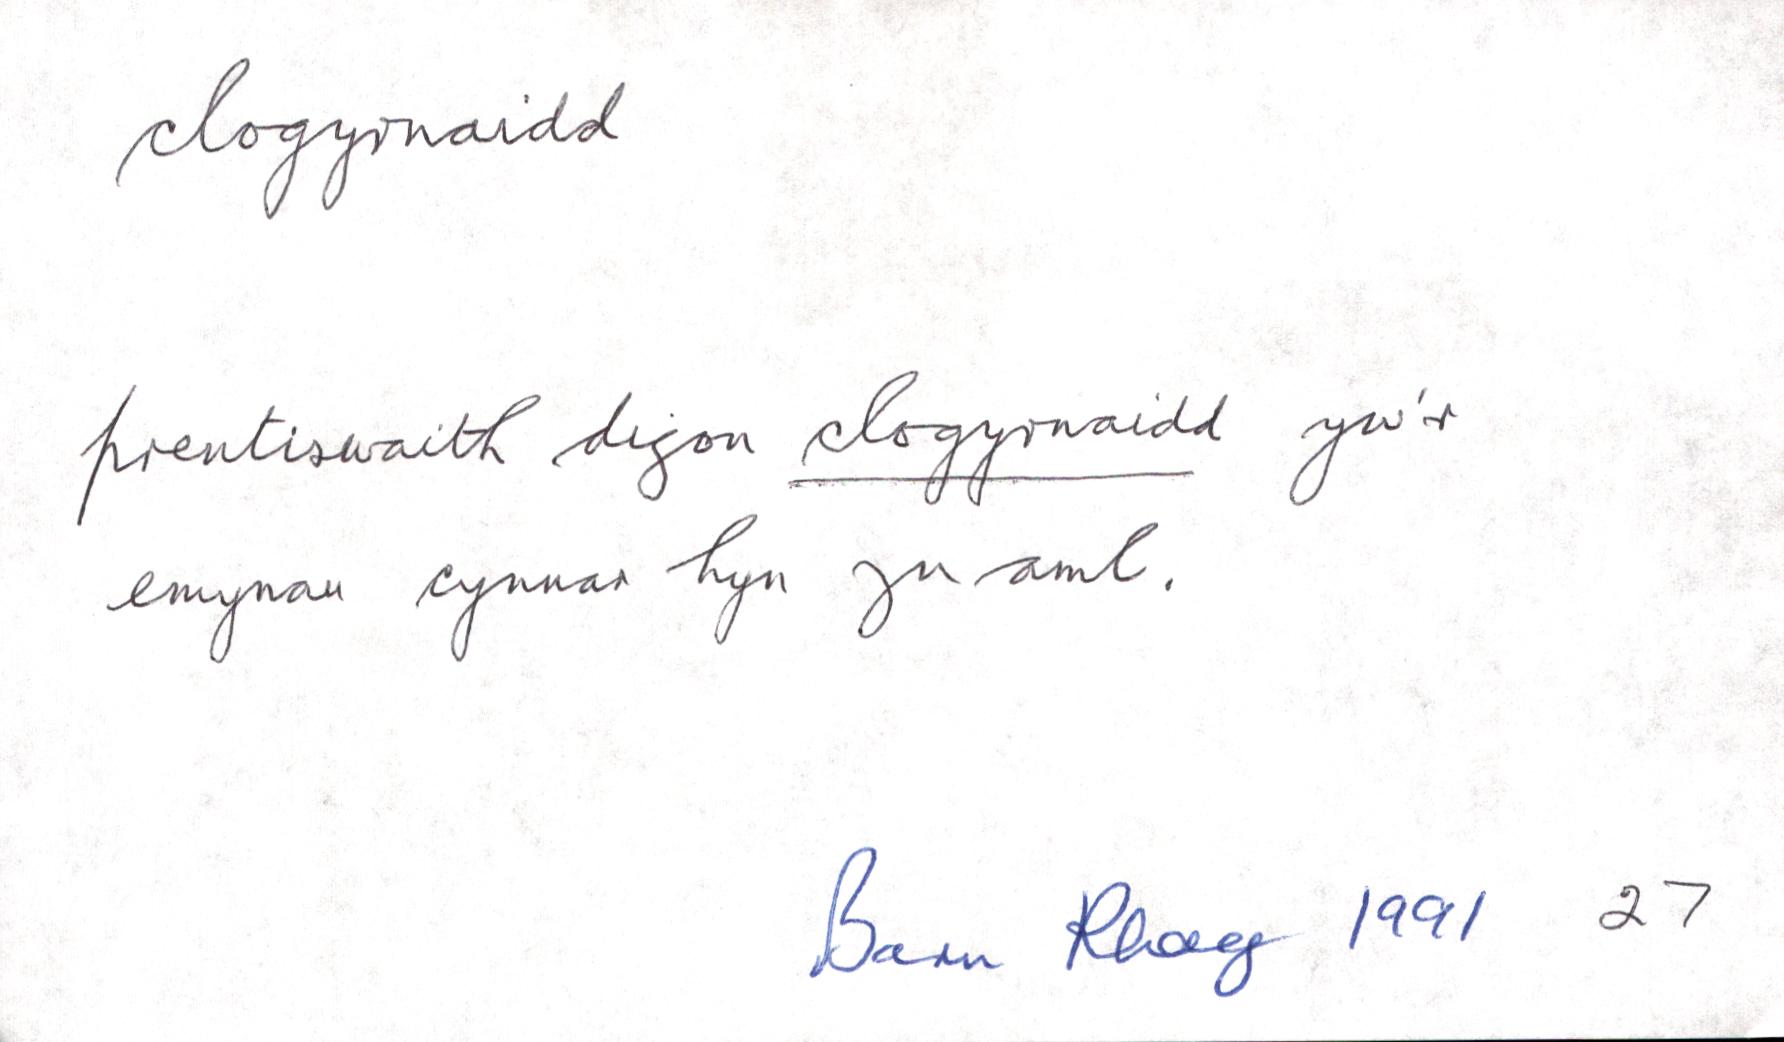 clogyrnaidd
prentiswaith digon clogyrnaidd yw'r
emynau cynnar hyn yn aml.
Barn Rhag 1991 27